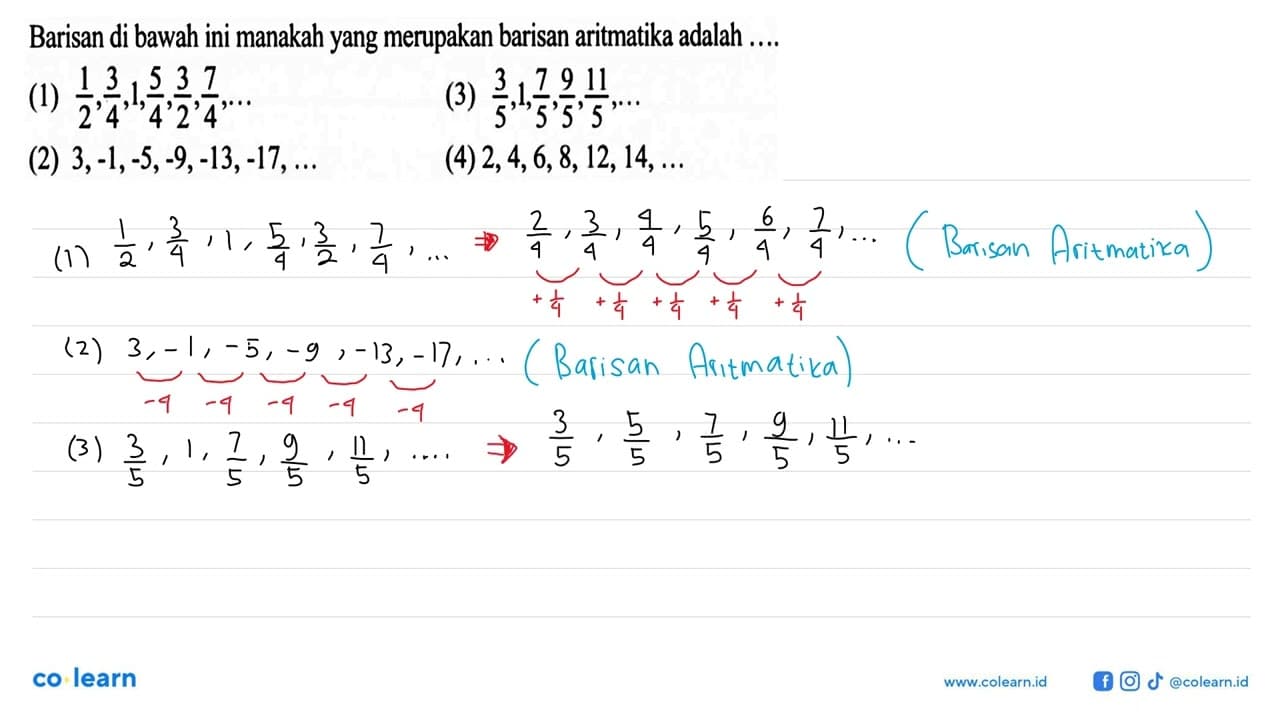 Barisan di bawah ini manakah yang merupakan barisan aritmatika adalah ....
(1) 1/2, 3/4, 1, 5/4, 3/2, 7/4, ...
(3) 3/5, 1, 7/5, 9/5, 11/5, ...
(2) 3, -1, -5, -9, -13, -17, ...
(4) 2, 4, 6, 8, 12, 14, ...
(1) 1/2, 3/4, 1, 5/4, 3/2, 7/4, ... ⇒ 2/4, 3/4, 4/4, 5/4, 6/4, 7/4, ... (Barisan Aritmatika)
+1/4 +1/4 +1/4 +1/4 +1/4
(2) 3, -1, -5, -9, -13, -17, ... (Barisan Aritmatika)
-4 -4 -4 -4 -4
(3) 3/5, 1, 7/5, 9/5, 11/5, .... ⇒ 3/5, 5/5, 7/5, 9/5, 11/5, ...
co learn
www.colearn.id
@colearn.id